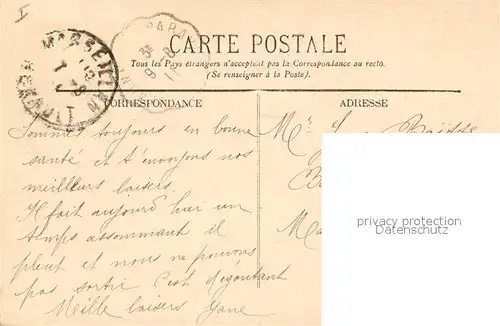 I
MARSEILLAN
PARA
CARTE POSTALE
Tous les Pays étrangers n'acceptent pas la Correspondance au recto.
(Se renseigner à la Poste).
CORRESPONDANCE
ADRESSE
Sommes toujours en bonne
santé et t'envoyons nos
meilleurs baisers.
Il fait aujourd'hui un
temps assommant il
pleut et nous ne pouvons
pas sortir C'est dégoutant
Mille baisers
Mr
privacy protection
Datenschutz